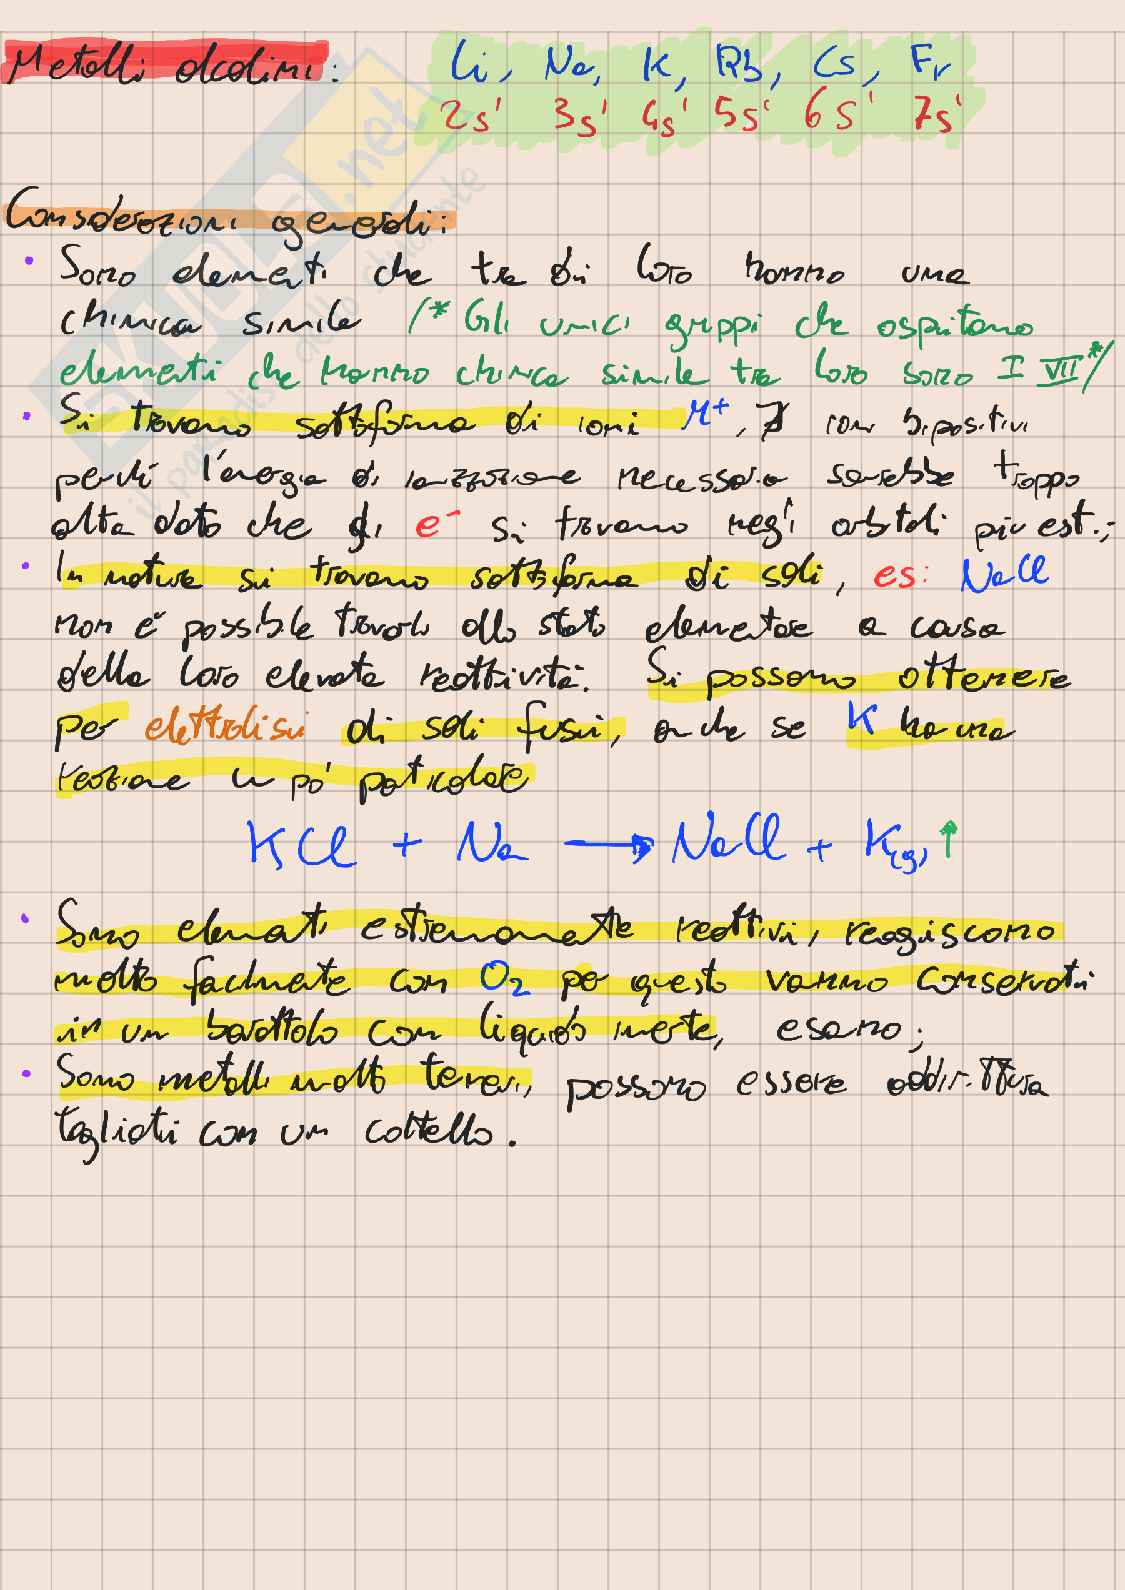 Metalli alcalini: Li, Na, K, Rb, Cs, Fr
2s¹ 3s¹ 4s¹ 5s¹ 6s¹ 7s¹
Considerazioni generali:
• Sono elementi che tra di loro hanno una
chimica simile /* Gli unici gruppi che ospitano
elementi che hanno chimica simile tra loro sono I VII */
• Si trovano sottoforma di ioni M⁺, ∄ ioni bipositivi
perché l'energia di ionizzazione necessaria sarebbe troppo
alta dato che gli e⁻ si trovano negli orbitali più est.;
• In natura si trovano sottoforma di sali, es: NaCl
non è possibile trovarli allo stato elementare a causa
della loro elevata reattività. Si possono ottenere
per elettrolisi di sali fusi, anche se K ha una
reazione un po' particolare
KCl + Na → NaCl + K(g) ↑
• Sono elementi estremamente reattivi, reagiscono
molto facilmente con O₂ per questo vanno conservati
in un barattolo con liquido inerte, esano;
• Sono metalli molto teneri, possono essere addirittura
tagliati con un coltello.
SKUOLA.net
il paradiso dello studente